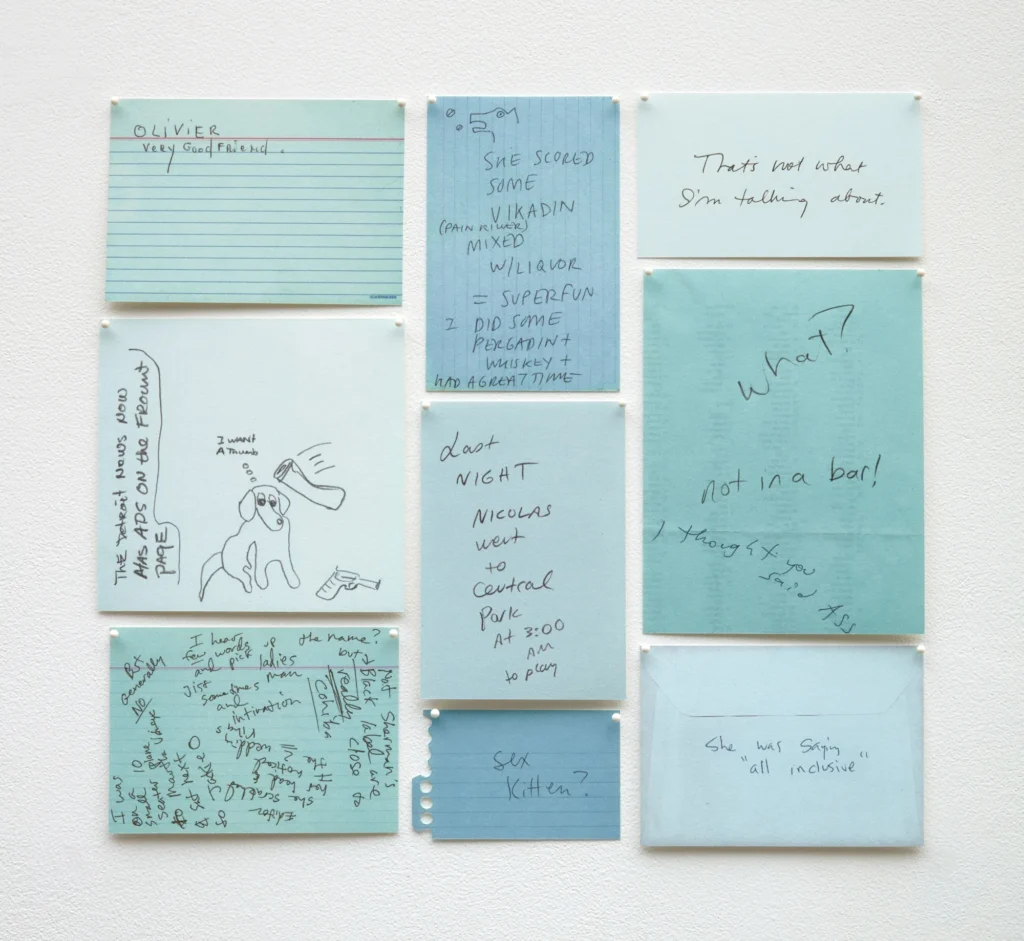 OLIVIER
very Good Friend.
SHE SCORED
SOME
VIKADIN
(PAIN KILLER)
MIXED
W/LIQUOR
= SUPERFUN
I DID SOME
PERGADIN +
WHISKEY +
HAD A GREAT TIME
That's not what
I'm talking about.
THE DETROIT NEWS NOW
HAS ADS ON the FROUNT
PAGE
I WANT
A Thumb
Last
NIGHT
NICOLAS
went
to
Central
Park
At 3:00
AM
to play
what?
not in a bar!
I thought you
said ASS
I hear
few words
and pick up
the name?
But
generally
NO
ladies
man
sometimes
and
intimation
but
really
Cohiba
Not Sherman's
Black label are
close to
Editor
she
had
noticed
the
wedding
ring
I was
on a
small 10
seater plane
Sat next
to
sex
Kitten?
She was saying
"all inclusive"